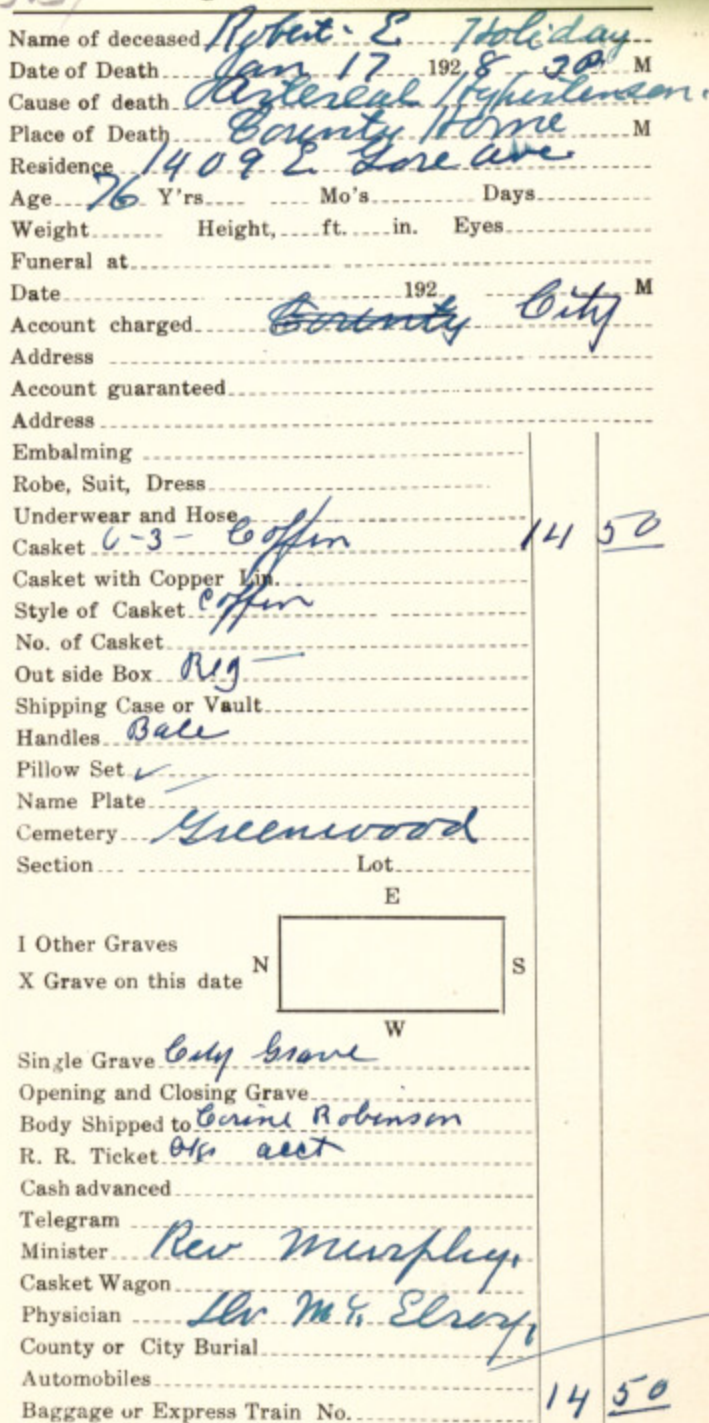 Name of deceased Robert E Holiday
Date of Death Jan 17 1928 2P M
Cause of death Artereal Hypertenson.
Place of Death County Home M
Residence 1409 E Gore ave
Age 76 Y'rs Mo's Days
Weight Height, ft. in. Eyes
Funeral at
Date 192 M
Account charged County City
Address
Account guaranteed
Address
Embalming
Robe, Suit, Dress
Underwear and Hose
Casket 6-3- Coffin 14 50
Casket with Copper Lin.
Style of Casket Coffin
No. of Casket
Out side Box Reg
Shipping Case or Vault
Handles Bale
Pillow Set ✓
Name Plate
Cemetery Greenwood
Section Lot
E
I Other Graves
N S
X Grave on this date
W
Single Grave City Grave
Opening and Closing Grave
Body Shipped to Corine Robinson
R. R. Ticket acct
Cash advanced
Telegram
Minister Rev Murphey.
Casket Wagon
Physician Dr Mc Elroy,
County or City Burial
Automobiles
Baggage or Express Train No. 14 50